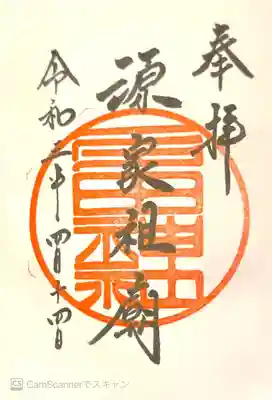 奉拝
源家祖廟
令和三年四月十四日
CS CamScannerでスキャン